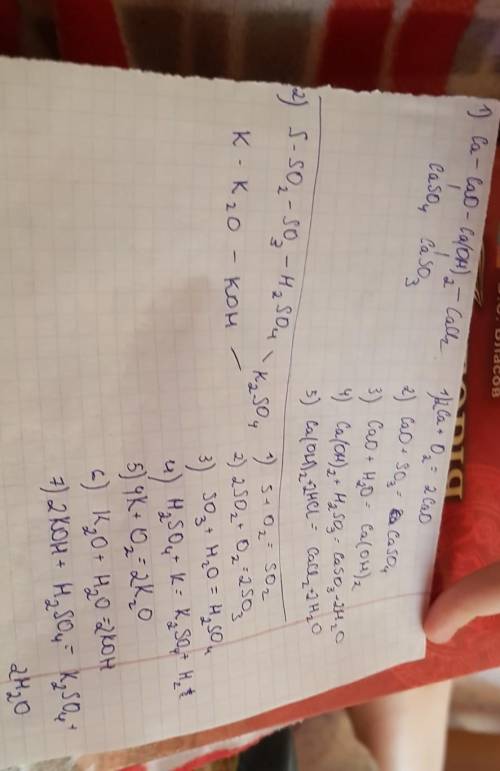 1) Ca - CaO - Ca(OH)₂ - CaCl₂
CaSO₄ CaSO₃
1) 2Ca + O₂ = 2CaO
2) CaO + SO₃ = CaSO₄
3) CaO + H₂O = Ca(OH)₂
4) Ca(OH)₂ + H₂SO₃ = CaSO₃ + 2H₂O
5) Ca(OH)₂ + 2HCl = CaCl₂ + 2H₂O
2) S - SO₂ - SO₃ - H₂SO₄ \ K₂SO₄
K - K₂O - KOH /
1) S + O₂ = SO₂
2) 2SO₂ + O₂ = 2SO₃
3) SO₃ + H₂O = H₂SO₄
4) H₂SO₄ + K = K₂SO₄ + H₂↑
5) 4K + O₂ = 2K₂O
6) K₂O + H₂O = 2KOH
7) 2KOH + H₂SO₄ = K₂SO₄ +
2H₂O